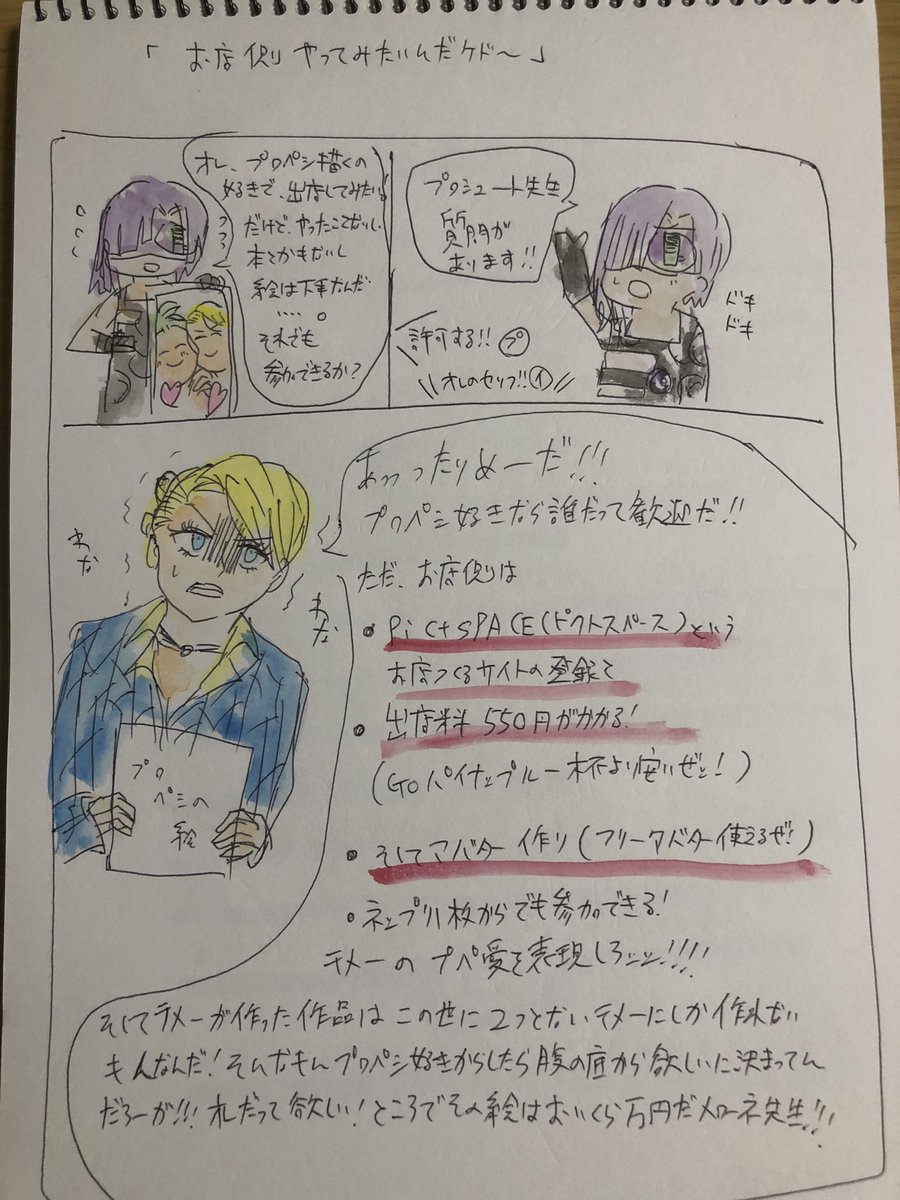 「お店側やってみたいんだケド〜」
プロシュート先生
質問が
あります!!
ドキ
ドキ
許可する!! プ
\\オレのセリフ!! イ//
オレ、プロペシ描くの
好きで、出店してみたい
だけど、やったことないし、
本とかもないし
絵は下手なんだ
....。
それでも
参加できるか?
あっったりめーだ!!!
プロペシ好きなら誰だって歓迎だ!!
ただ、お店側は
• PictSPACE(ピクトスペース)という
お店つくるサイトの登録と
• 出店料 550円がかかる!
(Goパイナップル一杯より安いぜッ!)
• そしてアバター作り(フリーアバター使えるぜ!)
• ネップリ1枚からでも参加できる!
テメーのプペ愛を表現しろッッ!!!!
わな
わな
プロ
ペシの
絵
そしてテメーが作った作品はこの世に2つとないテメーにしか作れない
もんなんだ!そんなもんプロペシ好きからしたら腹の底から欲しいに決まってん
だろーが!!!オレだって欲しい!ところでその絵はおいくら万円だメローネ先生!!!